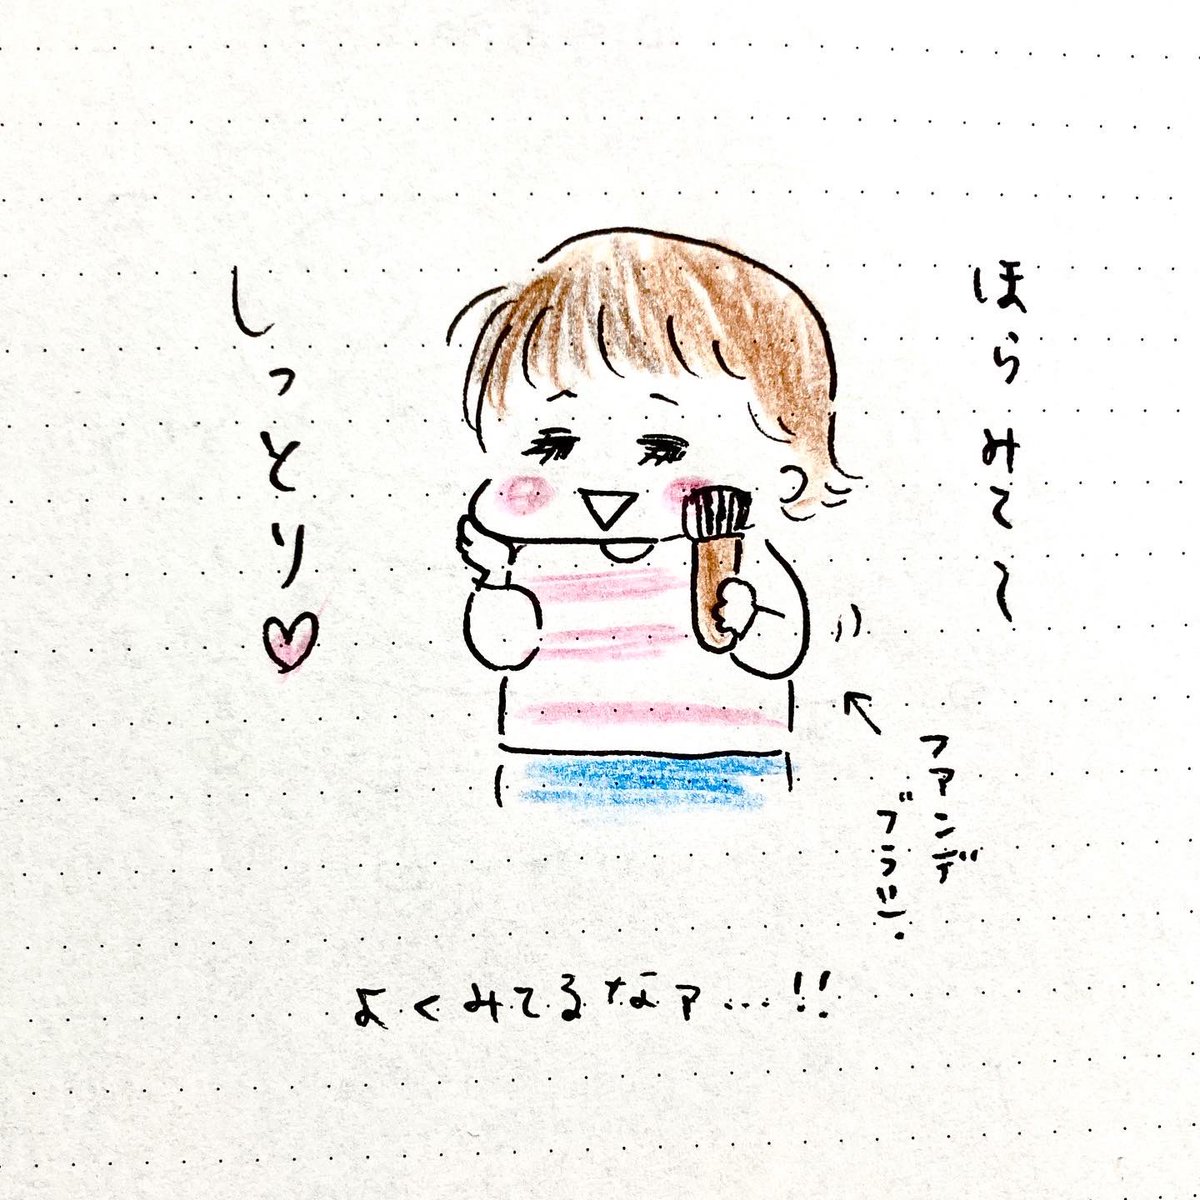 ほらみて〜
しっとり♡
ファンデ
ブラシ
よくみてるなァ...!!